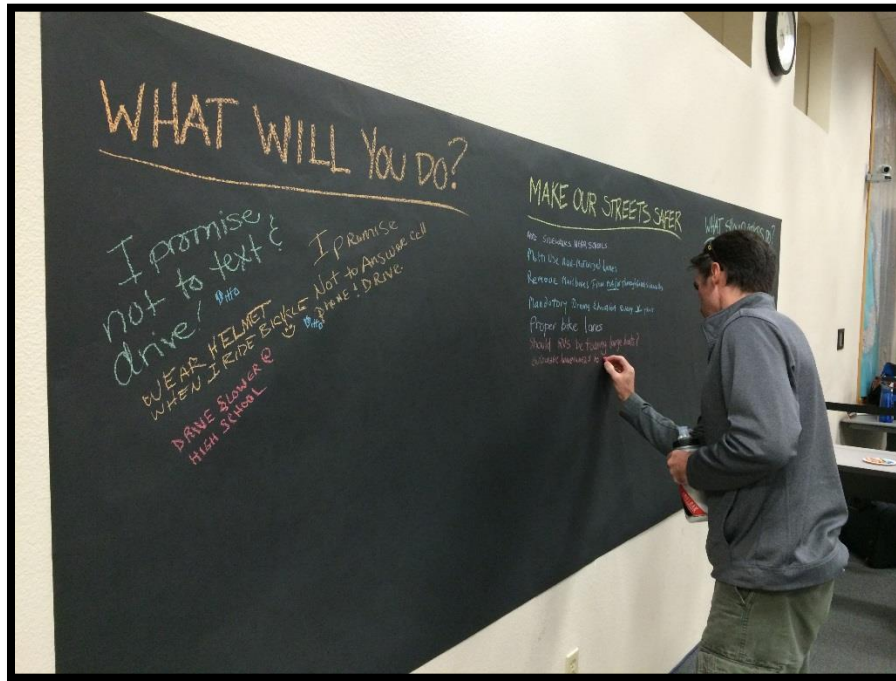 WHAT WILL YOU DO?
I promise
not to text &
drive!
Ditto
I promise
Not to Answer cell
phone & Drive.
Ditto
WEAR HELMET
WHEN I RIDE BICYCLE
DRIVE SLOWER @
HIGH SCHOOL
MAKE OUR STREETS SAFER
ADD SIDEWALKS NEAR SCHOOLS
Multi Use Non-Motorized Lanes
Remove Mailboxes From major
Mandatory Driving Education Every
Proper bike lanes
Should RVS be towing large boats?
WHAT SHOULD DO?